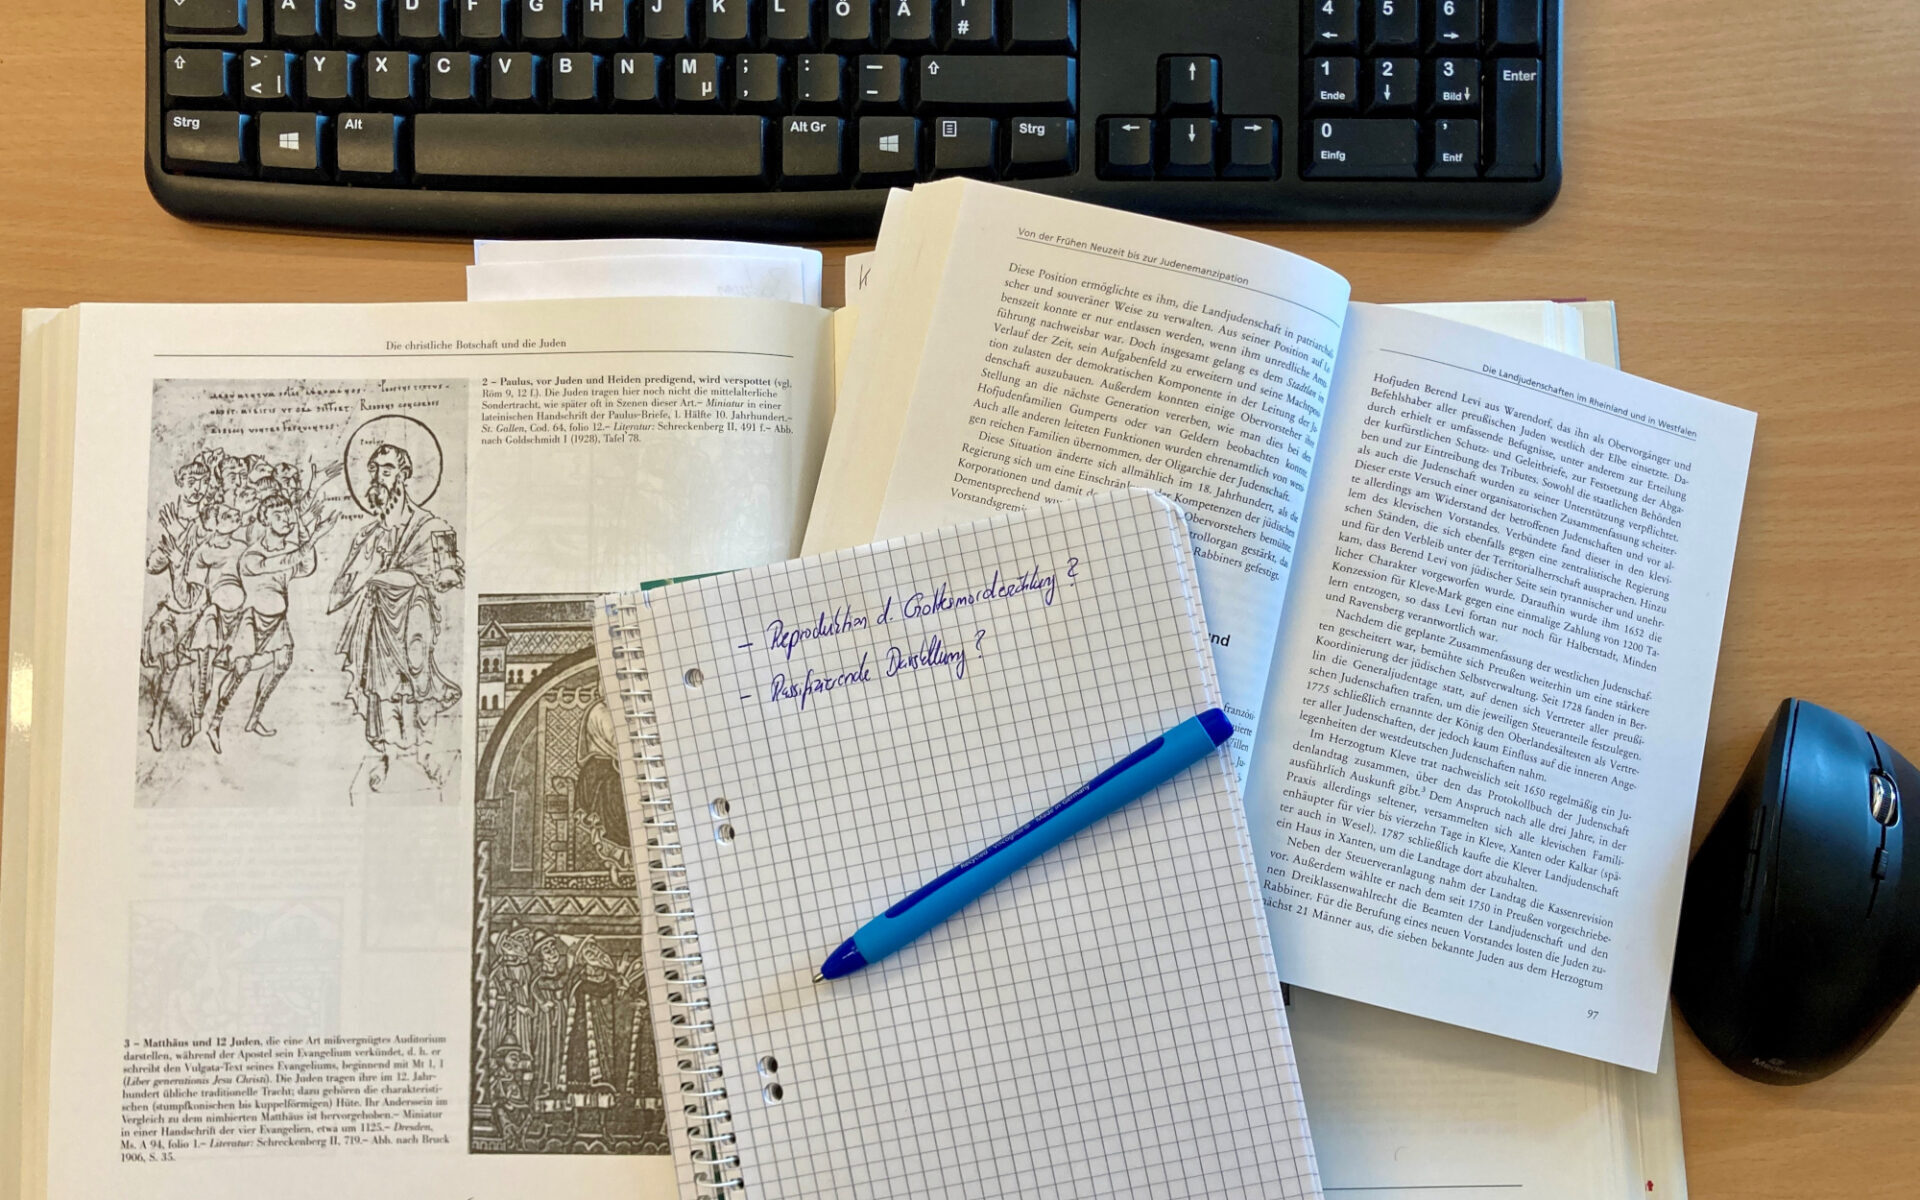 A S D F G H J K L Ö Ä ' #
4 5 6
> < | Y X C V B N M µ ; , : . — –
1 Ende 2 3 Bild Enter
Strg Alt Alt Gr Strg
0 Einfg , Entf
Die christliche Botschaft und die Juden
2 – Paulus, vor Juden und Heiden predigend, wird verspottet (vgl.
Röm 9, 12 f.). Die Juden tragen hier noch nicht die mittelalterliche
Sondertracht, wie später oft in Szenen dieser Art.– Miniatur in einer
lateinischen Handschrift der Paulus-Briefe, 1. Hälfte 10. Jahrhundert.–
St. Gallen, Cod. 64, folio 12.– Literatur: Schreckenberg II, 491 f.– Abb.
nach Goldschmidt I (1928), Tafel 78.
3 – Matthäus und 12 Juden, die eine Art mißvergnügtes Auditorium
darstellen, während der Apostel sein Evangelium verkündet, d. h. er
schreibt den Vulgata-Text seines Evangeliums, beginnend mit Mt 1, 1
(Liber generationis Jesu Christi). Die Juden tragen ihre im 12. Jahr-
hundert übliche traditionelle Tracht; dazu gehören die charakteristi-
schen (stumpfkonischen bis kuppelförmigen) Hüte. Ihr Anderssein im
Vergleich zu dem nimbierten Matthäus ist hervorgehoben.– Miniatur
in einer Handschrift der vier Evangelien, etwa um 1125.– Dresden,
Ms. A 94, folio 1.– Literatur: Schreckenberg II, 719.– Abb. nach Bruck
1906, S. 35.
– Reproduktion d. Gottesmorderzählung ?
– Passifizierende Darstellung ?
Made in Germany
Von der Frühen Neuzeit bis zur Judenemanzipation
Diese Position ermöglichte es ihm, die Landjudenschaft in patriarchali-
scher und souveräner Weise zu verwalten. Aus seiner Position auf Le-
benszeit konnte er nur entlassen werden, wenn ihm unredliche Amts-
führung nachweisbar war. Doch insgesamt gelang es dem Stadtlan im
Verlauf der Zeit, sein Aufgabenfeld zu erweitern und seine Machtposi-
tion zulasten der demokratischen Komponente in der Leitung der Ju-
denschaft auszubauen. Außerdem konnten einige Obervorsteher ihre
Stellung an die nächste Generation vererben, wie man dies bei den
Hofjudenfamilien Gumperts oder van Geldern beobachten konnte.
Auch alle anderen leiteten Funktionen wurden ehrenamtlich von weni-
gen reichen Familien übernommen, der Oligarchie der Judenschaft.
Diese Situation änderte sich allmählich im 18. Jahrhundert, als die
Regierung sich um eine Einschränkung der Kompetenzen der jüdischen
Korporationen und damit d Obervorstehers bemühte.
Dementsprechend wu trollorgan gestärkt, da
Vorstandsgremi Rabbiners gefestigt.
und
französ-
Die Landjudenschaften im Rheinland und in Westfalen
Hofjuden Berend Levi aus Warendorf, das ihn als Obervorgänger und
Befehlshaber aller preußischen Juden westlich der Elbe einsetzte. Da-
durch erhielt er umfassende Befugnisse, unter anderem zur Erteilung
der kurfürstlichen Schutz- und Geleitbriefe, zur Festsetzung der Abga-
ben und zur Eintreibung des Tributes. Sowohl die staatlichen Behörden
als auch die Judenschaft wurden zu seiner Unterstützung verpflichtet.
Dieser erste Versuch einer organisatorischen Zusammenfassung scheiter-
te allerdings am Widerstand der betroffenen Judenschaften und vor al-
lem des klevischen Vorstandes. Verbündete fand dieser in den klevi-
schen Ständen, die sich ebenfalls gegen eine zentralistische Regierung
und für den Verbleib unter der Territorialherrschaft aussprachen. Hinzu
kam, dass Berend Levi von jüdischer Seite sein tyrannischer und unehr-
licher Charakter vorgeworfen wurde. Daraufhin wurde ihm 1652 die
Konzession für Kleve-Mark gegen eine einmalige Zahlung von 1200 Ta-
lern entzogen, so dass Levi fortan nur noch für Halberstadt, Minden
und Ravensberg verantwortlich war.
Nachdem die geplante Zusammenfassung der westlichen Judenschaf-
ten gescheitert war, bemühte sich Preußen weiterhin um eine stärkere
Koordinierung der jüdischen Selbstverwaltung. Seit 1728 fanden in Ber-
lin die Generaljudentage statt, auf denen sich Vertreter aller preußi-
schen Judenschaften trafen, um die jeweiligen Steueranteile festzulegen.
1775 schließlich ernannte der König den Oberlandesältesten als Vertre-
ter aller Judenschaften, der jedoch kaum Einfluss auf die inneren Ange-
legenheiten der westdeutschen Judenschaften nahm.
Im Herzogtum Kleve trat nachweislich seit 1650 regelmäßig ein Ju-
denlandtag zusammen, über den das Protokollbuch der Judenschaft
ausführlich Auskunft gibt.³ Dem Anspruch nach alle drei Jahre, in der
Praxis allerdings seltener, versammelten sich alle klevischen Famili-
enhäupter für vier bis vierzehn Tage in Kleve, Xanten oder Kalkar (spä-
ter auch in Wesel). 1787 schließlich kaufte die Klever Landjudenschaft
ein Haus in Xanten, um die Landtage dort abzuhalten.
Neben der Steuerveranlagung nahm der Landtag die Kassenrevision
vor. Außerdem wählte er nach dem seit 1750 in Preußen vorgeschriebe-
nen Dreiklassenwahlrecht die Beamten der Landjudenschaft und den
Rabbiner. Für die Berufung eines neuen Vorstandes losten die Juden zu-
nächst 21 Männer aus, die sieben bekannte Juden aus dem Herzogtum
97